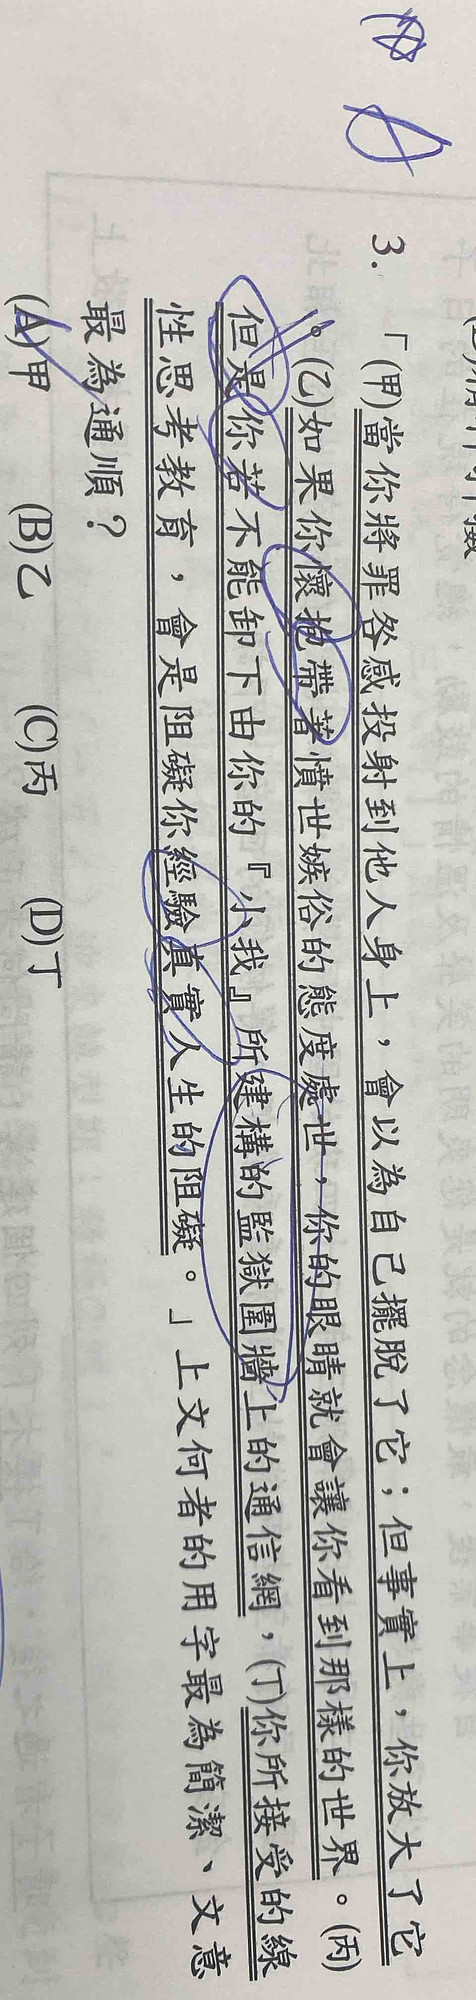 3. 「(甲)當你將罪咎感投射到他人身上，會以為自己擺脫了它；但事實上，你放大了它
。(乙)如果你懷抱帶著憤世嫉俗的態度處世，你的眼睛就會讓你看到那樣的世界。(丙)
但是你若不能卸下由你的『小我』所建構的監獄圍牆上的通信網，(丁)你所接受的線
性思考教育，會是阻礙你經驗真實人生的阻礙。」上文何者的用字最為簡潔、文意
最為通順？
(A)甲 (B)乙 (C)丙 (D)丁